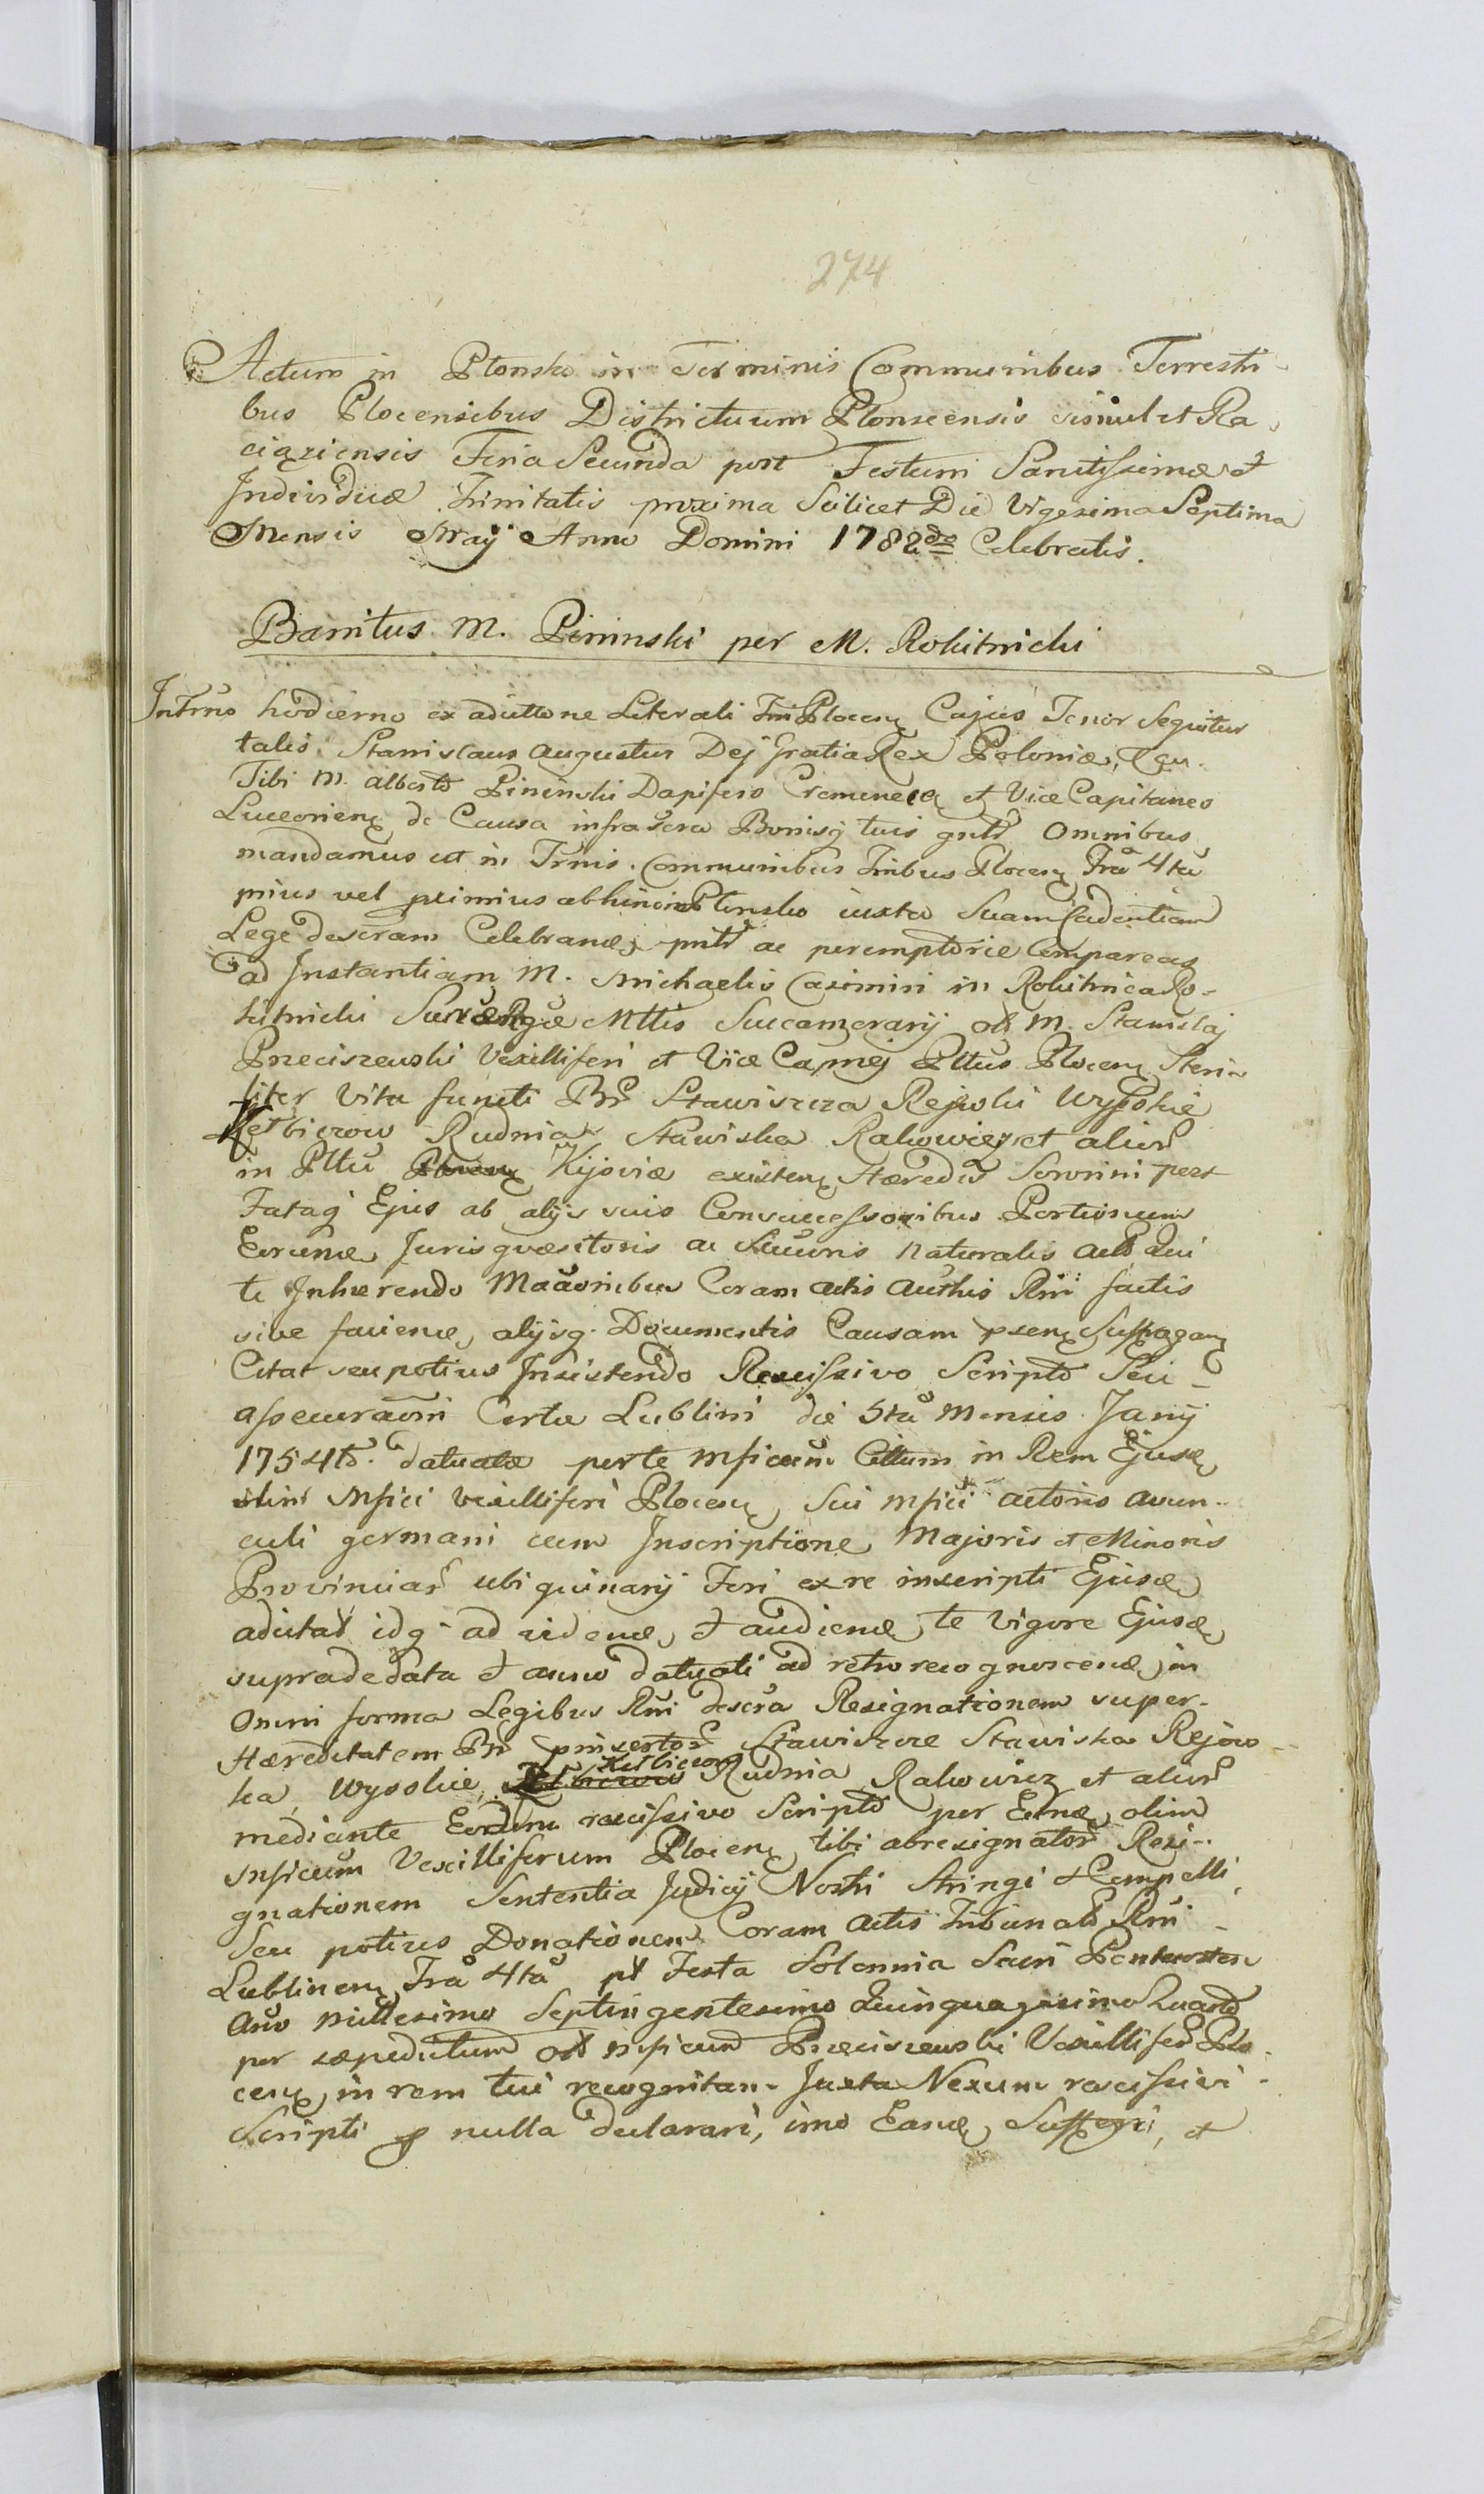 274
Actum in Płonsko in Terminis Communibus Terrestri-
bus Plocensibus Districtuum Płonscensis simul et Ra-
ciąziensis Feria Secunda post Festum Sanctissimæ et
Individuæ Trinitatis proxima Scilicet Die Vigesima Septima
Mensis Maÿ Anno Domini 1782do Celebratis.
Banitus M. Pininski per M. Rokitnicki
In Trno hodierno ex adcittone Literali Trri Plocen Cujus Tenor Sequitur
talis. Stanislaus Augustus Dej Gratia Rex Poloniæ,
Tibi M. Alberto Pininski Dapifero Cremenecen et Vice Capitaneo
Luceorien de Causa infrascra Bonisq tuis gnlr Omnibus
mandamus ut in Trnis Communibus Trribus Plocen Fra 4ta
prius vel proximius abhinc in Płonsko iuxta Suam Cadentiam
Lege descram Celebrane pntr ac peremptorie Compareas
ad Instantiam M. Michaelis Casimiri in Rokitnica Ro-
kitnicki Sacræ Rgæ Mttis Succamerarÿ olim M. Stanislaj
Przeciszewski Vexilliferi et Vice Capnej Plttus Plocen Steri-
liter Vita functi Br Stawiszcza Rejowki Wysokie
Ketbicrow Rudnia Stawiska Rakowicz et alior
in Plttu Kijoviæ existen Hæredis Sororini post
Fataq Ejus ab alijs suis Consuccessoribus Portionum
Earunde Juris quæsitoris ac Succris Naturalis acto Qui
te Inhærendo Maãonibus Coram Actis Authis Rni factis
sive faciene, alijsq Documentis Causam psen Suffragan
Citat seu potius Insistendo Rescissivo Scripto Seu
assecuraõni Certæ Lublini die 5ta Mensis Junÿ
1754to datuatæ per te Mficum Cittum in Rem Ejusde
olim Mfici Vexilliferi Plocen, Sui Mfici actoris avun-
culi germani cum Inscriptione Majoris et Minoris
Provinciar ubiquinarÿ Fori ex re inscripti Ejusde
adcitat idq ad videne, et audiene te Vigore Ejusde
supradedata et anno datuati ad retro recognoscene, in
Omni forma Legibus Rni descra Resignationem super
Hæreditatem Br prinsertor Stawiszcze Stawiska Rejow-
ka, Wysokie, Ketbicrow Rudnia Rakowicz et alior
mediante Eodem rescissivo Scripto per Eunde, olim
Mficum Vexilliferum Plocen, tibi abresignator Resi-
gnationem Sententia Judicÿ Nostri Stringi et Compelli
Seu potius Donationem Coram Actis Tribunals Rni
Lublinen Fra 4ta pt Festa Solennia Sacri Pentecostes
Ano Millesimo Septingentesimo Quinquagesimo Quarto
per sæpedictum olim Mficum Przeciszewski Vexillifer Plo-
cen, in rem tui recognitam Juxta Nexum rescissivi
Scripti p nulla declarari, imo Eande, et